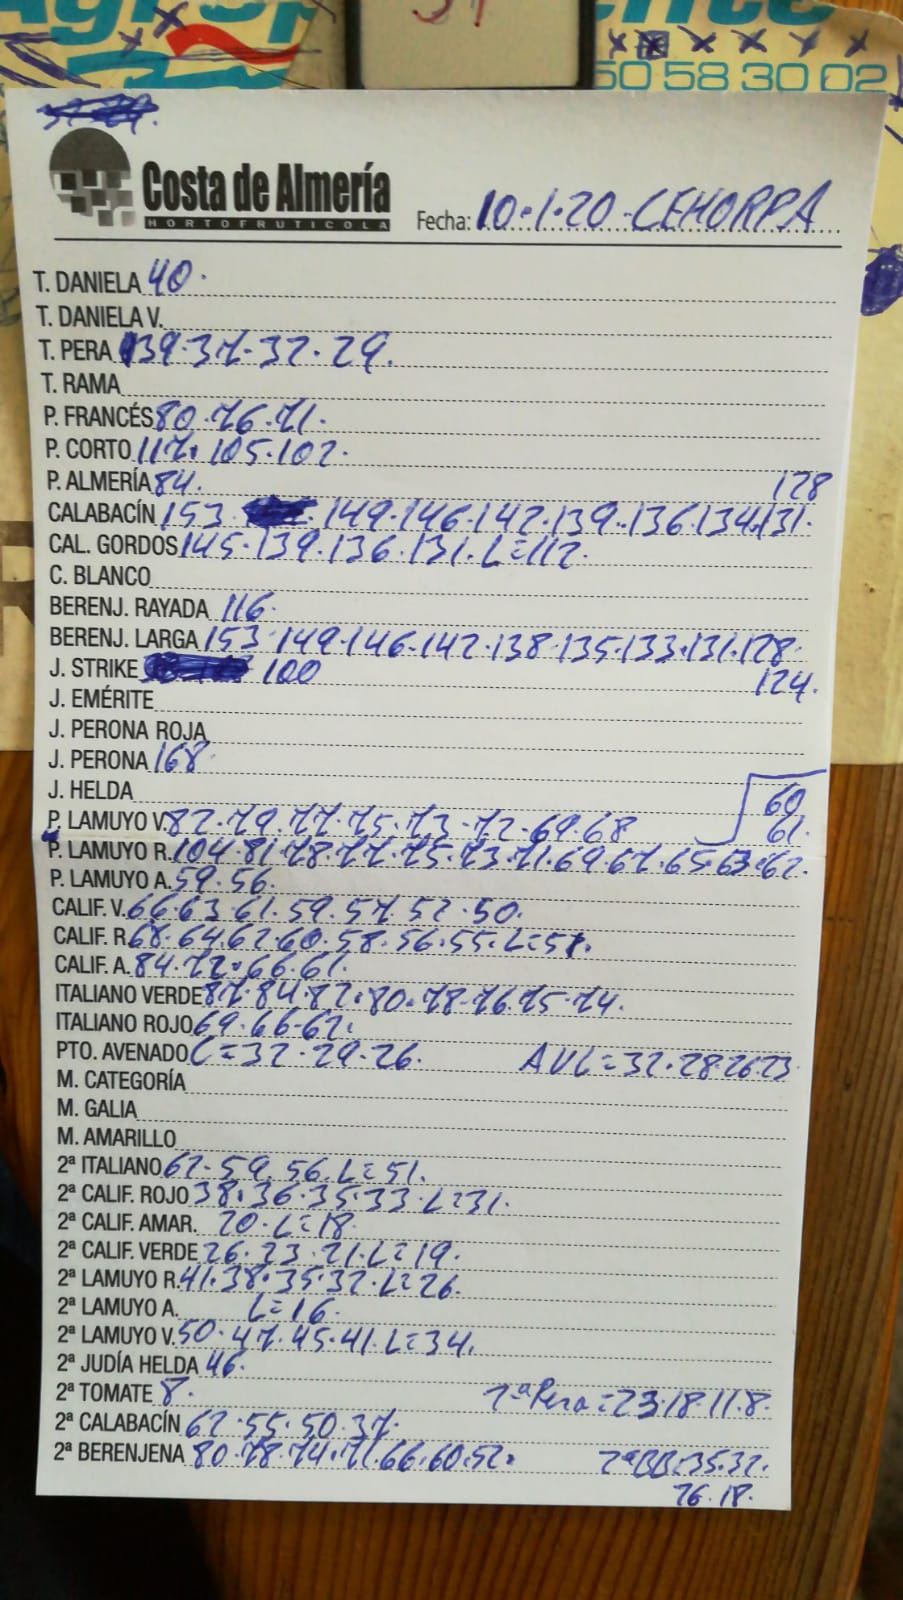 50 58 30 02
Costa de Almería
HORTOFRUTICOLA
Fecha: 10.1.20 - CEHORPA
T. DANIELA 40.
T. DANIELA V.
T. PERA 39.37.32.29.
T. RAMA
P. FRANCÉS 80.76.71.
P. CORTO 117.105.102.
P. ALMERÍA 84. 128
CALABACÍN 153. 149.146.142.139.136.134.131.
CAL. GORDOS 145.139.136.131.L=112.
C. BLANCO
BERENJ. RAYADA 116.
BERENJ. LARGA 153.149.146.142.138.135.133.131.128.
J. STRIKE 100 124.
J. EMÉRITE
J. PERONA ROJA
J. PERONA 168.
J. HELDA 60
P. LAMUYO V. 82.79.77.75.73.72.69.68 61.
P. LAMUYO R. 104.81.78.77.75.73.71.69.67.65.63.62.
P. LAMUYO A. 59.56.
CALIF. V. 66.63.61.59.57.52.50.
CALIF. R. 68.64.62.60.58.56.55.L=51.
CALIF. A. 84.72.66.61.
ITALIANO VERDE 87.84.82.80.78.76.75.74.
ITALIANO ROJO 69.66.62.
PTO. AVENADO C=32.29.26. AVL=32.28.26.23.
M. CATEGORÍA
M. GALIA
M. AMARILLO
2ª ITALIANO 62.59.56.L=51.
2ª CALIF. ROJO 38.36.35.33.L=31.
2ª CALIF. AMAR. 20.L=18.
2ª CALIF. VERDE 26.23.21.L=19.
2ª LAMUYO R. 41.38.35.32.L=26.
2ª LAMUYO A. L=16.
2ª LAMUYO V. 50.47.45.41.L=34.
2ª JUDÍA HELDA 46.
2ª TOMATE 8. 2ªPera=23.18.11.8.
2ª CALABACÍN 62.55.50.37.
2ª BERENJENA 80.78.74.71.66.60.52. 2ªBB=35.32.
26.18.